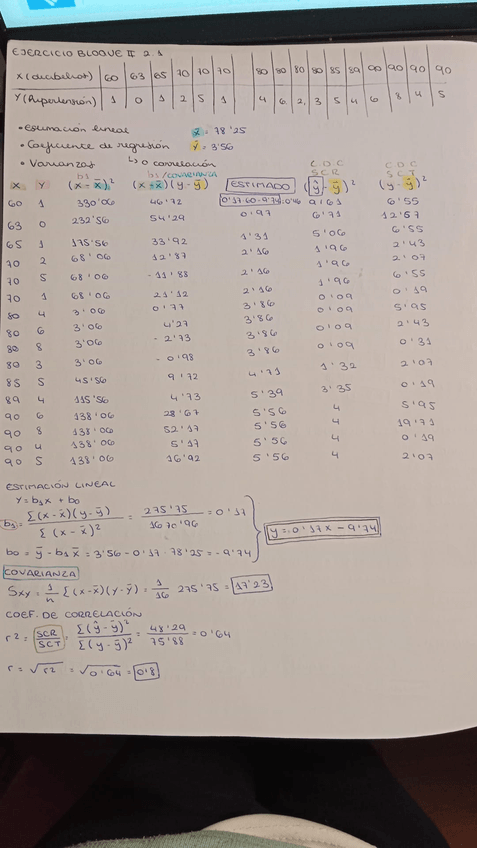 EJERCICIO BLOQUE II 2.1
X (decibelios) 60 63 65 70 70 70 80 80 80 80 85 89 90 90 90 90
Y (Hipertensión) 1 0 1 2 5 1 4 6 2, 3 5 4 6 8 4 5
• Estimación lineal x̄ = 78'25
• Coeficiente de regresión ȳ = 3'56
• Varianzas ↳ o correlación
b1 b1/COVARIANZA C.D.C SCR C.D.C SCT
X Y (x-x̄)² (x-x̄)(y-ȳ) ESTIMADO (ŷ-ȳ)² (y-ȳ)²
60 1 330'06 46'72 0'17·60-9'74=0'46 9'61 6'55
63 0 232'56 54'29 0'97 6'71 12'67
65 1 175'56 33'92 1'31 5'06 6'55
70 2 68'06 12'87 2'16 1'96 2'43
70 5 68'06 -11'88 2'16 1'96 2'07
70 1 68'06 21'12 2'16 1'96 6'55
80 4 3'06 0'77 3'86 0'09 0'19
80 6 3'06 4'27 3'86 0'09 5'95
80 8 3'06 -2'73 3'86 0'09 2'43
80 3 3'06 -0'98 3'86 0'09 0'31
85 5 45'56 9'72 4'71 1'32 2'07
89 4 115'56 4'73 5'39 3'35 0'19
90 6 138'06 28'67 5'56 4 5'95
90 8 138'06 52'17 5'56 4 19'71
90 4 138'06 5'17 5'56 4 0'19
90 5 138'06 16'92 5'56 4 2'07
ESTIMACIÓN LINEAL
Y = b1x + b0
b1 = Σ(x-x̄)(y-ȳ) / Σ(x-x̄)² = 275'75 / 1670'96 = 0'17
y = 0'17x - 9'74
b0 = ȳ - b1x̄ = 3'56 - 0'17·78'25 = -9'74
COVARIANZA
Sxy = 1/n Σ(x-x̄)(y-ȳ) = 1/16 275'75 = 17'23
COEF. DE CORRELACIÓN
r² = SCR/SCT = Σ(ŷ-ȳ)² / Σ(y-ȳ)² = 48'29 / 75'88 = 0'64
r = √r² = √0'64 = 0'8